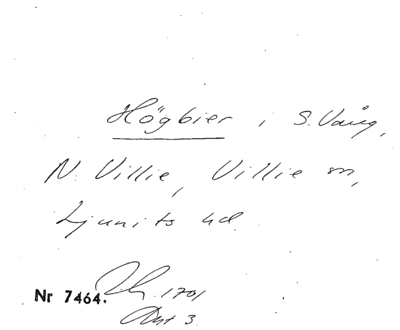 Högbier i S. Vång,
N. Villie, Villie sn,
Ljunits hd.
Nr 7464. 1701
Akt 3